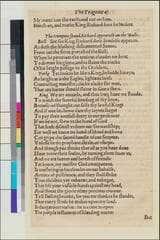 The Tragedie of
My water's on the earth and not on him,
March on, and marke King Richard how he lookes.
The trumpets sound, Richard appeareth on the walls.
Bull. See see King Richard doth himselfe appeare
As doth the blushing discontented Sunne,
From out the fierie portall of the East,
When he perceiues the enuious cloudes are bent
To dimme his glorie, and to staine the tracke
Of his bright passage to the Occident.
Yorke Yet lookes he like a King, beholde his eye
As bright as is the Eagles, lightens forth
Controlling maiestie, alacke for woe
That any harme should staine so faire a shew.
King We are amazde, and thus long haue we stood,
To watch the fearefull bending of thy knee,
Because we thought our selfe thy lawful King:
And if we be, how dare thy ioynts forget
To pay their awefull dutie to our presence?
If we be not, shew vs the hand of God
That hath dismist vs from our Stewardship,
For well we know no hand of bloud and bone
Can gripe the sacred handle of our Scepter,
Vnlesse he do prophane, steale or vsurpe,
And though you thinke that all as you haue done
Haue torne their soules, by turning them from vs,
And we are barren and bereft of friends:
Yet know, my maister God omnipotent,
Is mustering in his cloudes on our behalfe,
Armies of pestilence, and they shall strike
Your children yet vnborne, and vnbegot,
That lift your vassaile hands against my head,
And threat the glorie of my precious crowne.
Tell Bullingbrooke, for yon me thinkes he stands,
That euery stride he makes vpon my land,
Is daungerous treason: he is come to open
The purple testament of bleeding warre:
But